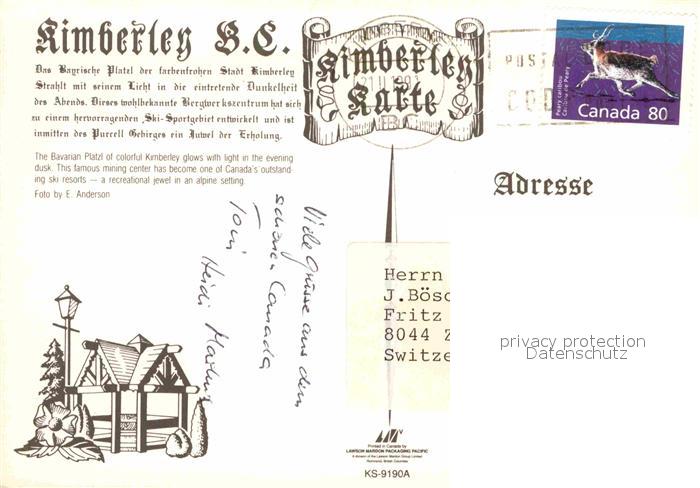 Kimberley B.C.
Das Bayrische Platzl der farbenfrohen Stadt Kimberley
Strahlt mit seinem Licht in die eintretende Dunkelheit
des Abends. Dieses wohlbekannte Bergwerkszentrum hat sich
zu einem hervorragenden Ski-Sportgebiet entwickelt und ist
inmitten des Purcell Gebirges ein Juwel der Erholung.
The Bavarian Platzl of colorful Kimberley glows with light in the evening
dusk. This famous mining center has become one of Canada's outstand-
ing ski resorts — a recreational jewel in an alpine setting.
Foto by E. Anderson
Kimberley
Karte
POSTAL
COD
Peary caribou
Caribou de Peary
Canada 80
Adresse
Viele Grüsse aus dem
schönen Canada
Toni Heidi
Herrn
J.Bösc
Fritz
8044 Z
Switze
privacy protection
Datenschutz
Printed in Canada by
LAWSON MARDON PACKAGING PACIFIC
A division of the Lawson Mardon Group Limited
Richmond, British Columbia
KS-9190A